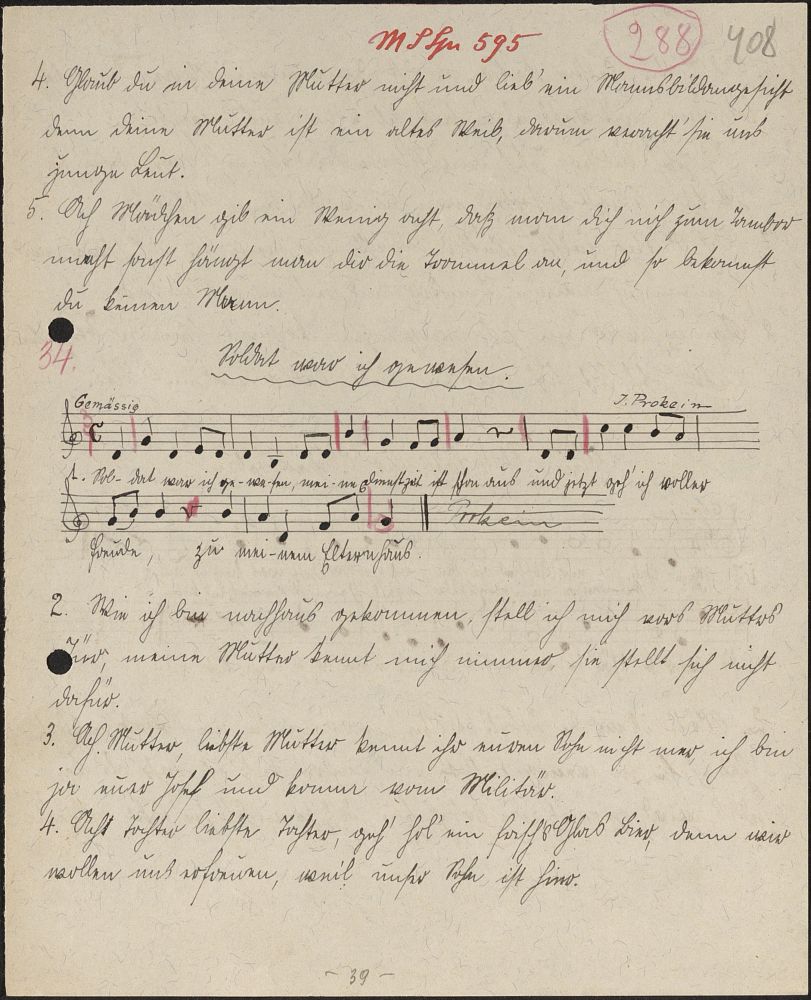 MS Spr 595 288 408
4. Glaub du in deine Mutter nicht und lieb' ein Mannsbildangesicht
denn deine Mutter ist ein altes Weib, darum veracht' sie uns
junge Leut.
5. Ach Mädchen gib ein Wenig acht, daß man dich nich zum Tambor
macht sonst hängt man dir die Trommel an, und so bekommst
du keinen Mann.
34. Soldat war ich gewesen.
Gemässig J. Prokein
1. Sol-dat war ich ge-we-sen, mei-ne Dienstzeit ist schon aus und jetzt geh' ich voller
Prokein
Freude, zu mei-nem Elternhaus.
2. Wie ich bin nachhaus gekommen, stell ich mich vors Mutters
Tür, meine Mutter kennt mich nimmer, sie stellt sich nicht
dafür.
3. Ach Mutter, liebste Mutter kennt ihr euren Sohn nicht mer, ich bin
ja euer Josef und komm vom Militär.
4. Ach Tochter liebste Tochter, geh' hol' ein frisch's Glas Bier, denn wir
wollen uns erfreuen, weil unser Sohn ist hier.
- 39 -